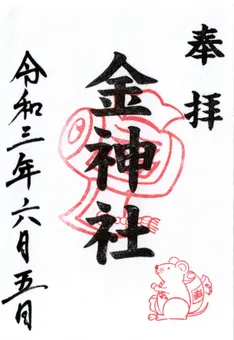 奉拝
金神社
令和三年六月五日